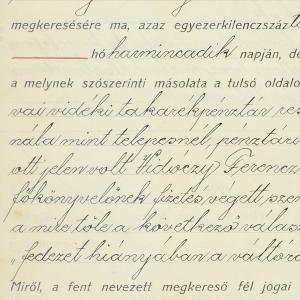 megkeresésére ma, azaz egyezerkilenczszáz
hó harmincadik napján, de
a melynek szószerinti másolata a tulsó oldalo
vai vidéki takarékpénztár res
nála mint telepesnél, pénztári
ott jelen volt Vidoczy Ferencz
főkönyvelőnek fizetés végett szem
a mire tőle a következő válasz
„fedezet hiányában a váltóra
Miről, a fent nevezett megkereső fél jogai